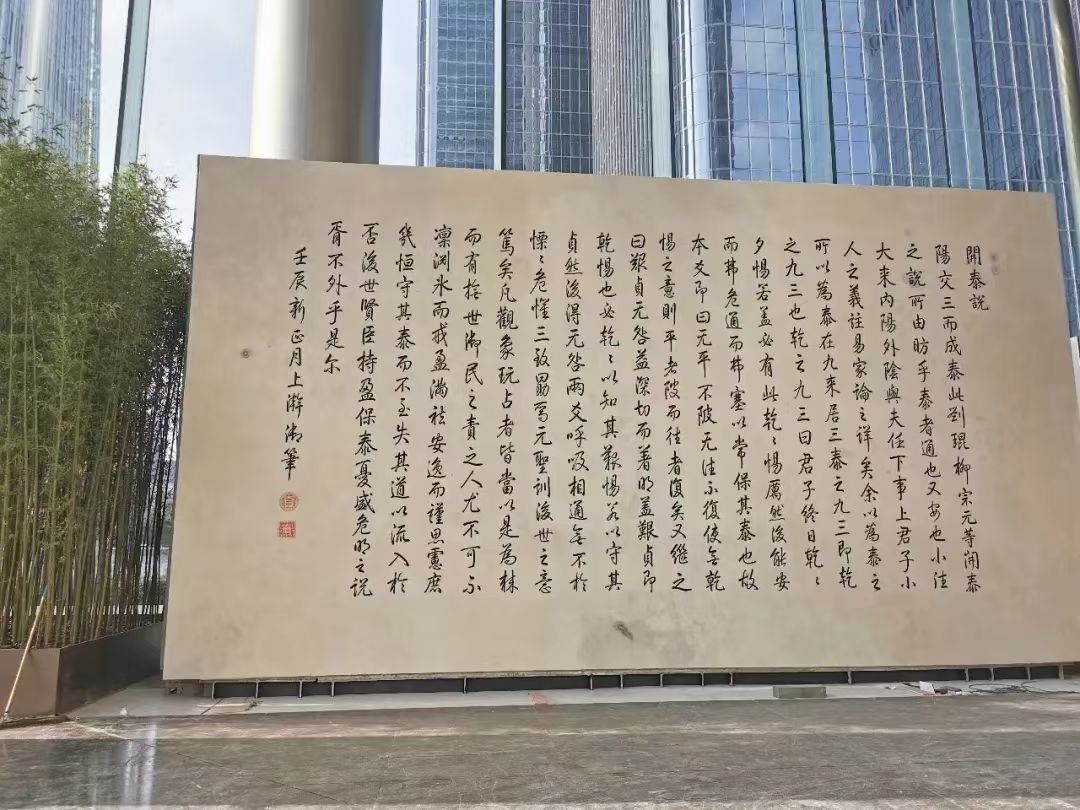 開泰説
陽交三而成泰此劉琨柳宗元等開泰
之説所由昉乎泰者通也又安也小往
大来内陽外陰與夫任下事上君子小
人之義註易家論之詳矣余以為泰之
所以為泰在九来居三泰之九三即乾
之九三也乾之九三曰君子終日乾〻
夕惕若蓋必有此乾〻惕厲然後能安
而弗危通而弗塞以常保其泰也故
本爻即曰无平不陂无往不復使無乾
惕之意則平者陂而往者復矣又繼之
曰艱貞无咎益深切而著明蓋艱貞即
乾惕也必乾〻以知其艱惕若以守其
貞然後得无咎兩爻呼吸相通無不於
慄〻危懼三致勗焉元聖訓後世之意
篤矣凡觀象玩占者皆當以是為
而有撫世御民之責之人尤不可不
凛渊氷而戒盈滿祛安逸而謹思憲庶
幾恒守其泰而不至失其道以流入於
否後世賢臣持盈保泰憂盛危明之説
胥不外乎是尔
壬辰新正月上澣御筆